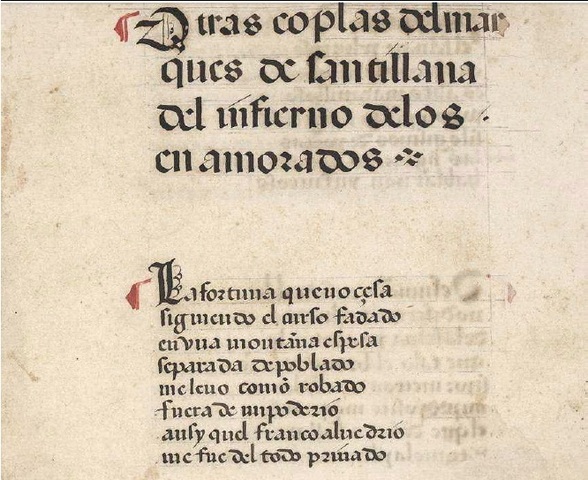 Otras coplas del mar
ques de santillana
del infierno delos
en amorados
La fortuna que no çesa
siguiendo el curso fadado
en vna montaña espesa
separada de poblado
me leuo como robado
fuera de mi poderio
ansy quel franco aluedrio
me fue del todo priuado